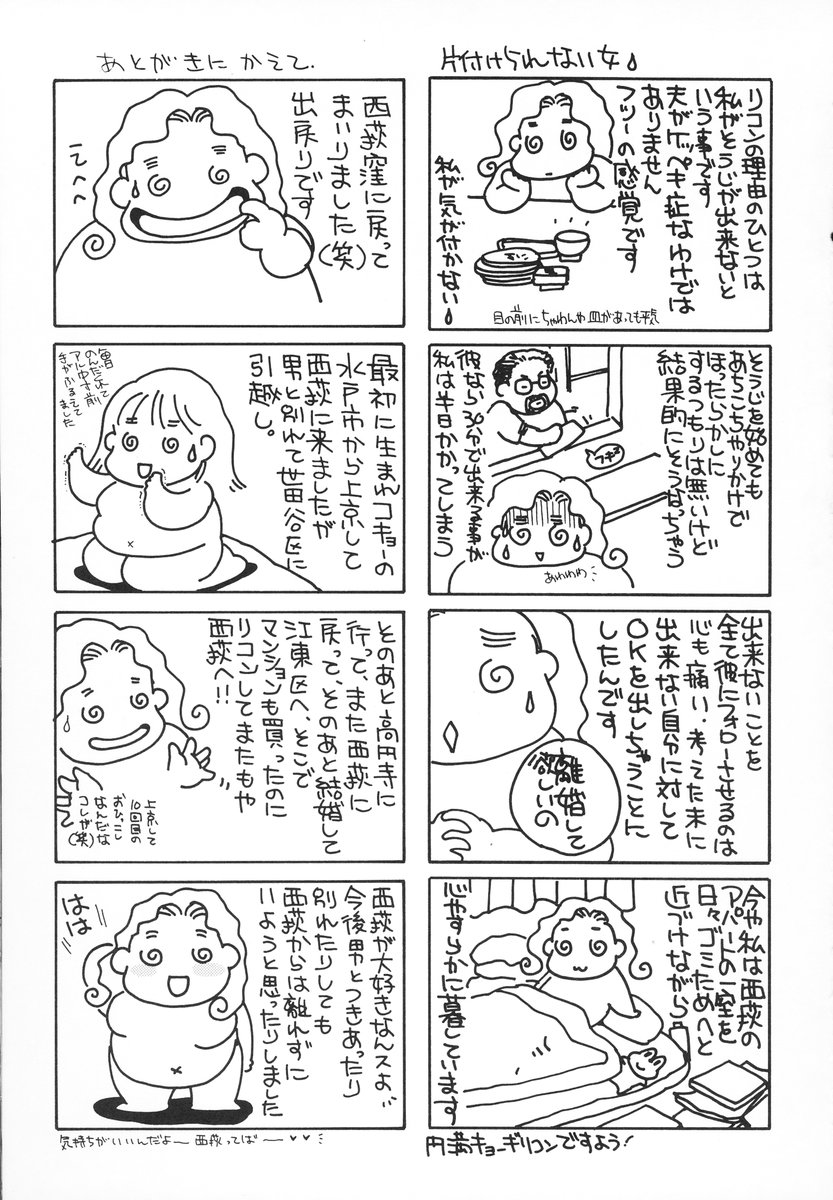 片付けられない女
リコンの理由のひとつは
私がそうじが出来ないと
いう事です
夫がケッペキ症なわけでは
ありません
フツーの感覚です
私が気が付かない
目の前にちゃわんや皿があっても平気
そうじを始めても
あちこちやりかけで
ほったらかしに
するつもりは無いけど
結果的にそうなっちゃう
彼なら30分で出来る事が
私は半日かかってしまう
フキフキ
あわわわ
出来ないことを
全て彼にフォローさせるのは
心も痛い・考えた末に
出来ない自分に対して
OKを出しちゃうことに
したんです
離婚して
欲しいの
今や私は西荻の
アパートの一室を
日々ゴミためへと
近づけながら
心やすらかに暮しています
円満キョーギリコンですよう!
あとがきに かえて.
西荻窪に戻って
まいりました(笑)
出戻りです
てへへ
最初に生まれコキョーの
水戸市から上京して
西荻に来ましたが
男と別れて世田谷区に
引越し。
アル中寸前
手がふるえて
ました
そのあと高円寺に
行って、また西荻に
戻って、そのあと結婚して
江東区へ、そこで
マンションも買ったのに
リコンしてまたもや
西荻へ!!
上京して
10回目の
おひっこし
なんだな
コレが(笑)
西荻が大好きなんスよ
今後男とつきあったり
別れたりしても
西荻からは離れずに
いようと思ったりしました
はは
気持ちがいいんだよ〜西荻ってば〜♥♥